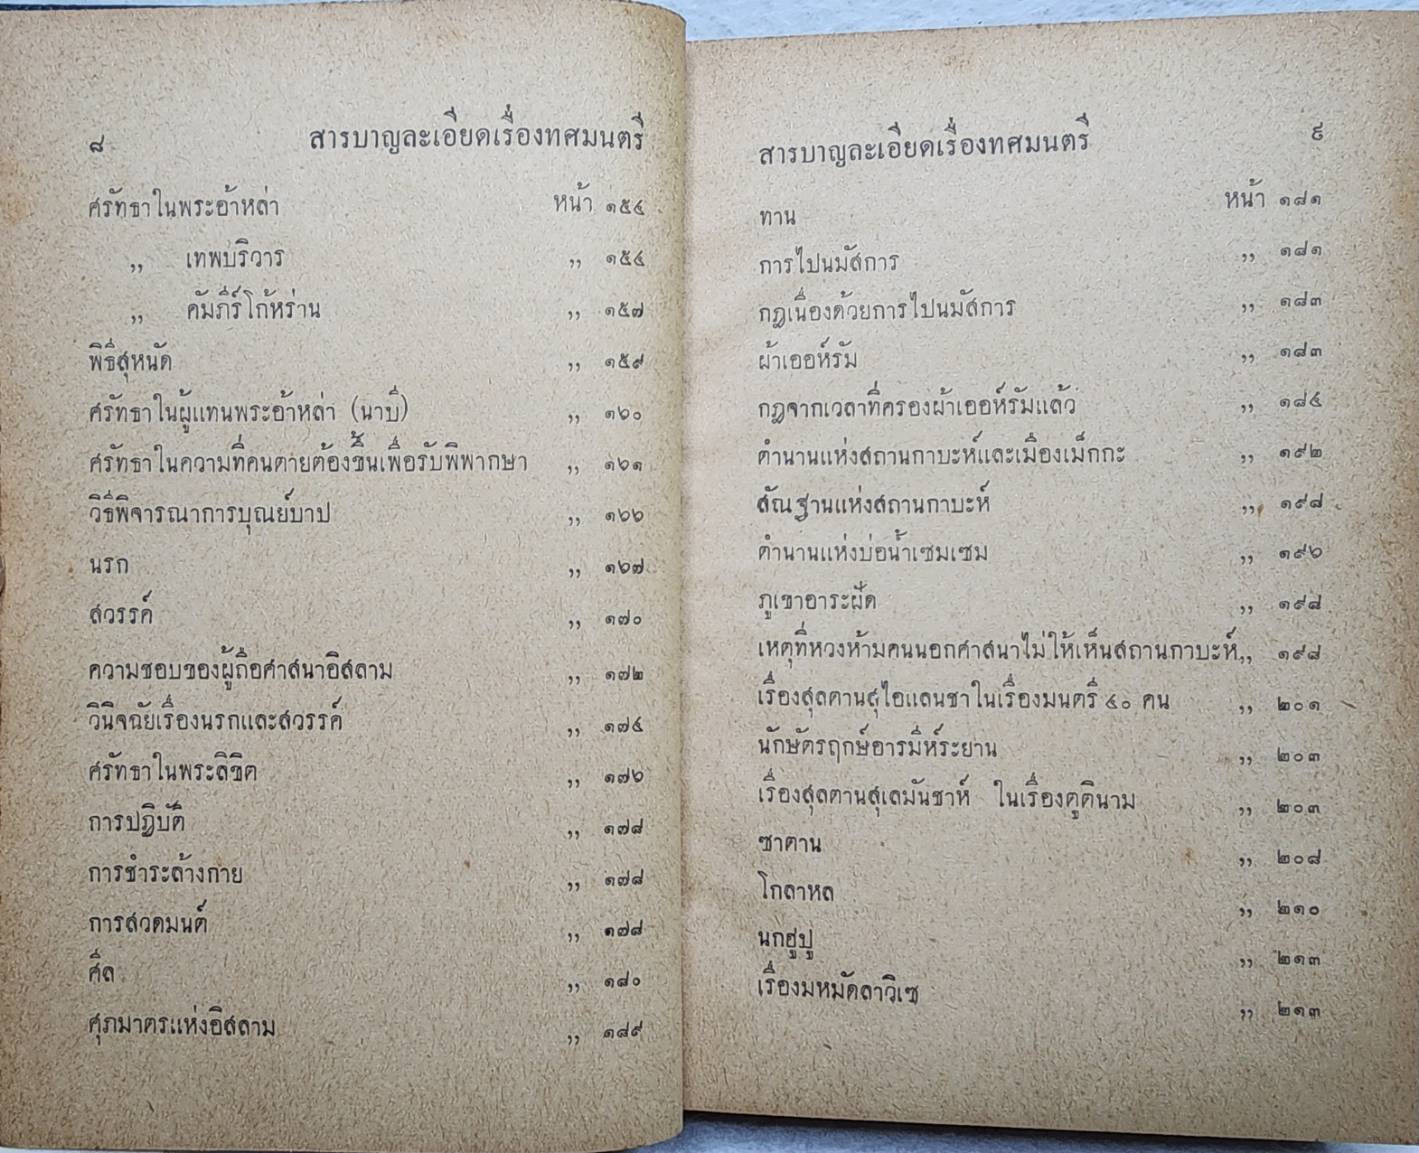 ๘ สารบาญละเอียดเรื่องทศมนตรี
ศรัทธาในพระอ้าหล่า หน้า ๑๕๔
,, เทพบริวาร ,, ๑๕๔
,, คัมภีร์โก้หร่าน ,, ๑๕๗
พิธีสุหนัต ,, ๑๕๙
ศรัทธาในผู้แทนพระอ้าหล่า (นาบี) ,, ๑๖๐
ศรัทธาในความที่คนตายต้องขึ้นเพื่อรับพิพากษา ,, ๑๖๑
วิธีพิจารณาการบุณย์บาป ,, ๑๖๖
นรก ,, ๑๖๗
สวรรค์ ,, ๑๗๐
ความชอบของผู้ถือศาสนาอิสลาม ,, ๑๗๒
วินิจฉัยเรื่องนรกและสวรรค์ ,, ๑๗๔
ศรัทธาในพระลิขิต ,, ๑๗๖
การปฏิบัติ ,, ๑๗๘
การชำระล้างกาย ,, ๑๗๘
การสวดมนต์ ,, ๑๗๘
ศีล ,, ๑๘๐
ศุภมาตรแห่งอิสลาม ,, ๑๘๙
สารบาญละเอียดเรื่องทศมนตรี ๙
ทาน หน้า ๑๘๑
การไปนมัสการ ,, ๑๘๑
กฎเนื่องด้วยการไปนมัสการ ,, ๑๘๓
ผ้าเออห์รัม ,, ๑๘๓
กฎจากเวลาที่ครองผ้าเออห์รัมแล้ว ,, ๑๘๔
ตำนานแห่งสถานกาบะห์และเมืองเม็กกะ ,, ๑๙๒
สัณฐานแห่งสถานกาบะห์ ,, ๑๙๘
ตำนานแห่งบ่อน้ำเซมเซม ,, ๑๙๖
ภูเขาอาระฝัด ,, ๑๙๘
เหตุที่หวงห้ามคนนอกศาสนาไม่ให้เห็นสถานกาบะห์,, ๑๙๘
เรื่องสุลตานสุไอแลนชาในเรื่องมนตรี ๔๐ คน ,, ๒๐๑
นักษัตรฤกษ์อารมีห์ระยาน ,, ๒๐๓
เรื่องสุลตานสุเลมันชาห์ ในเรื่องตูตินาม ,, ๒๐๓
ซาตาน ,, ๒๐๘
โกลาหล ,, ๒๑๐
นกฮูปู ,, ๒๑๓
เรื่องมหมัดลาวิเซ ,, ๒๑๓